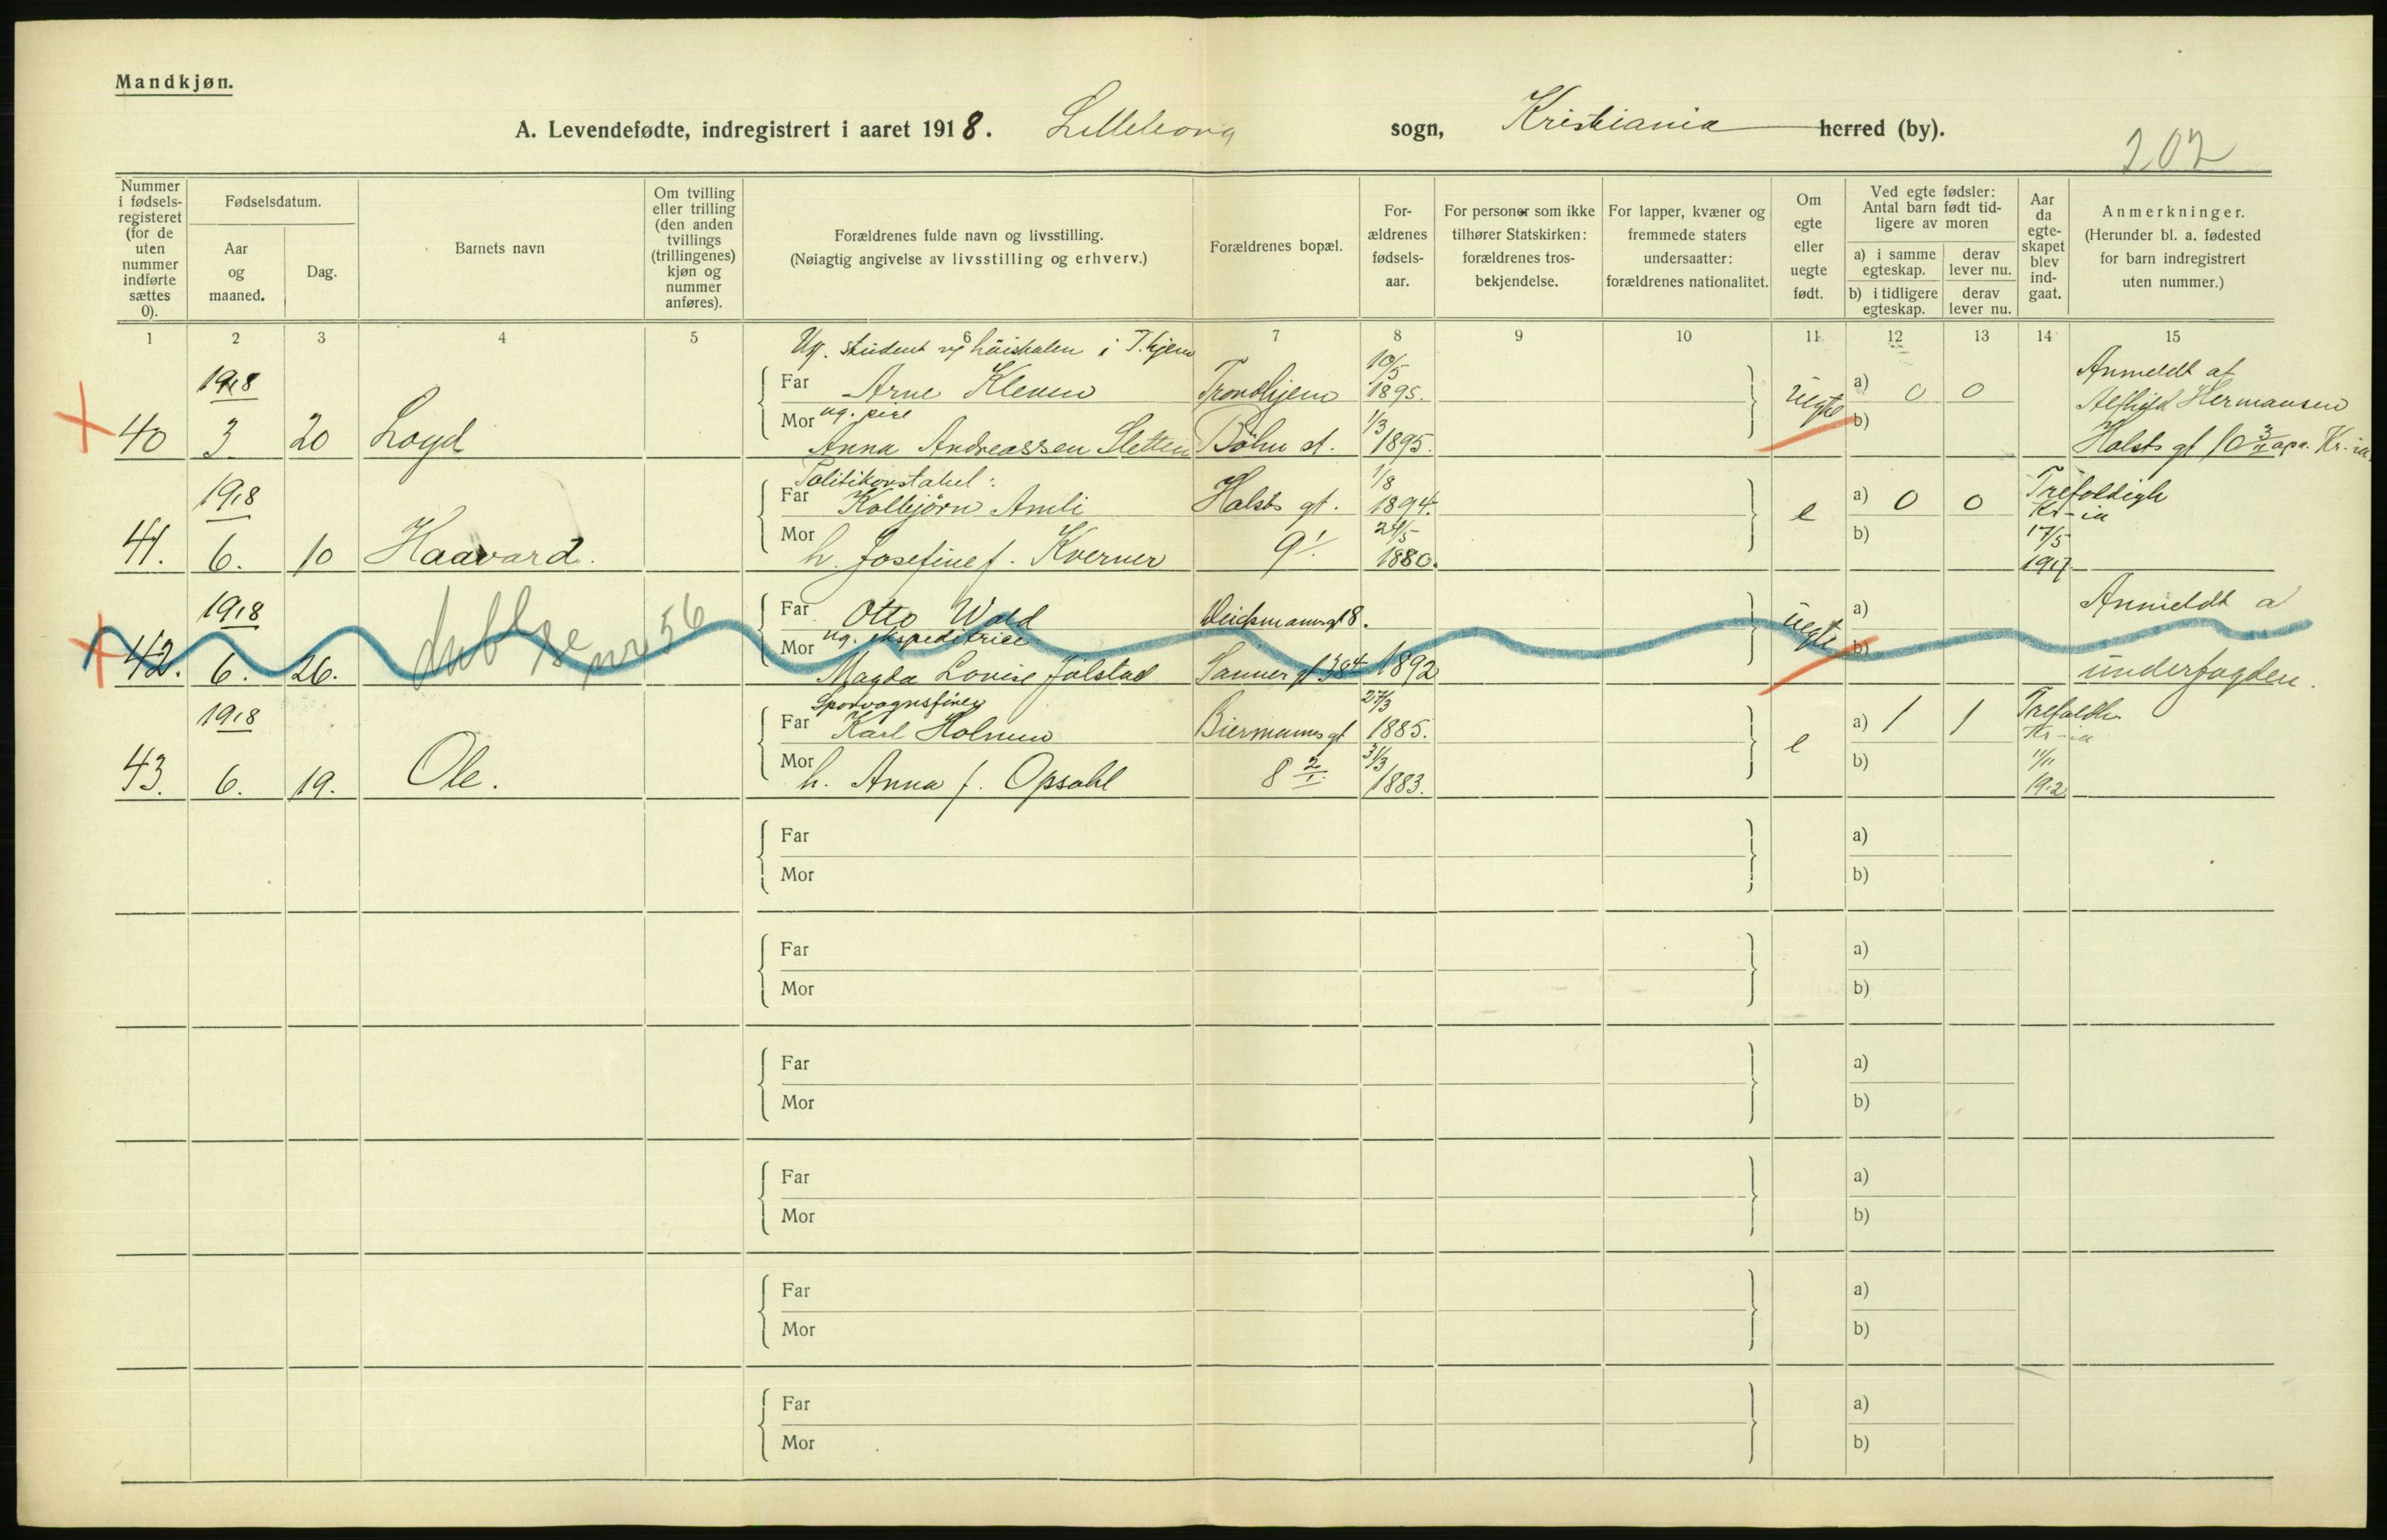 Mandkjøn.
A. Levendefødte, indregistrert i aaret 1918. Lilleborg sogn, Kristiania herred (by).
202
Nummer i fødsels-registeret (for de uten nummer indførte sættes 0).
Fødselsdatum.
Aar og maaned.
Dag.
Barnets navn
Om tvilling eller trilling (den anden tvillings (trillingenes) kjøn og nummer anføres).
Forældrenes fulde navn og livsstilling.
(Nøiagtig angivelse av livsstilling og erhverv.)
Forældrenes bopæl.
For-ældrenes fødsels-aar.
For personer som ikke tilhører Statskirken: forældrenes tros-bekjendelse.
For lapper, kvæner og fremmede staters undersaatter: forældrenes nationalitet.
Om egte eller uegte født.
Ved egte fødsler: Antal barn født tid-ligere av moren
a) i samme egteskap.
derav lever nu.
b) i tidligere egteskap.
derav lever nu.
Aar da egte-skapet blev ind-gaat.
Anmerkninger.
(Herunder bl. a. fødested for barn indregistrert uten nummer.)
1 2 3 4 5 6 7 8 9 10 11 12 13 14 15
Ug. student v/ höiskolen i T.hjem
1918 Far Arne Kleven Trondhjem 10/5 1895. uegte a) 0 0 Anmeldt af
40 3 20 Loyd Mor ug. pike b) Hermansen
Anna Andreassen Sletten Böhn st. 1/3 1895. Holsts gt 10 3/ opg. Kr-ia
Politikonstabel
1918 Far Kolbjørn Amli Holsts gt. 1/8 1894. e a) 0 0 Trefoldigh Kr-ia
41. 6. 10 Haavard. Mor h. Josefine f. Kverner 9 24/5 1880. b) 17/5 1917
1918 dublse nr 56 Far Otto Wold Deichmansgt 8. uegte a) Anmeldt a
42. 6. 26. Mor ug. ekspeditrice b)
Magda Lovise Jølstad Sanner gt 1892 underfogden.
Sporvognsfører
1918 Far Karl Holmen Biermannsgt 27/3 1885. e a) 1 1 Trefoldh. Kr-ia
43. 6. 19. Ole. Mor h. Anna f. Opsahl 8 2/I 31/3 1883. b) 11/11 1912
Far a)
Mor b)
Far a)
Mor b)
Far a)
Mor b)
Far a)
Mor b)
Far a)
Mor b)
Far a)
Mor b)